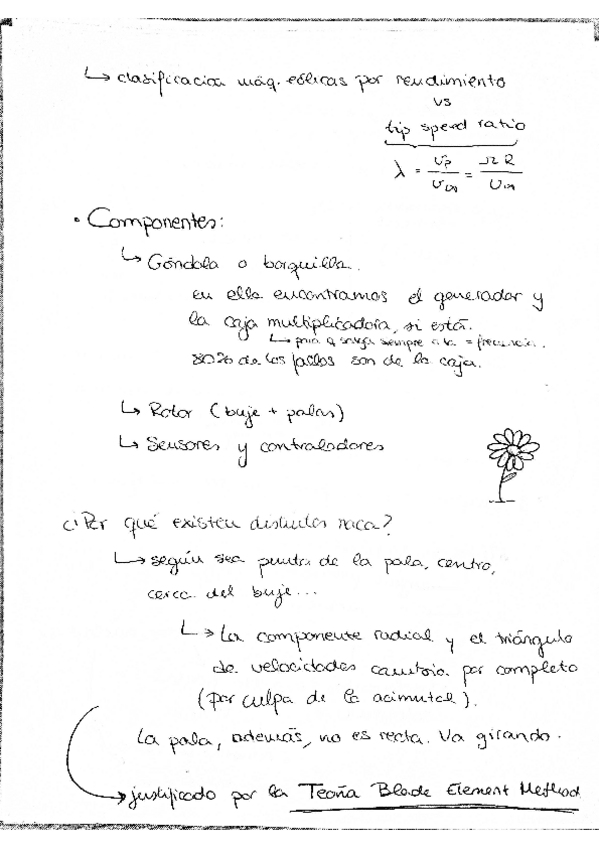 ↳ clasificación máq. eólicas por rendimiento
vs
tip speed ratio
λ = Up / U∞ = Ω R / U∞
• Componentes:
↳ Góndola o barquilla.
en ella encontramos el generador y
la caja multiplicadora, si está.
↳ para q salga siempre a la = frecuencia.
80% de los fallos son de la caja.
↳ Rotor (buje + palas)
↳ Sensores y controladores
¿Por qué existen distintos naca?
↳ según sea punta de la pala, centro,
cerca del buje...
↳ La componente radial y el triángulo
de velocidades cambia por completo
(por culpa de la acimutal).
La pala, además, no es recta. Va girando.
→ justificado por la Teoría Blade Element Method